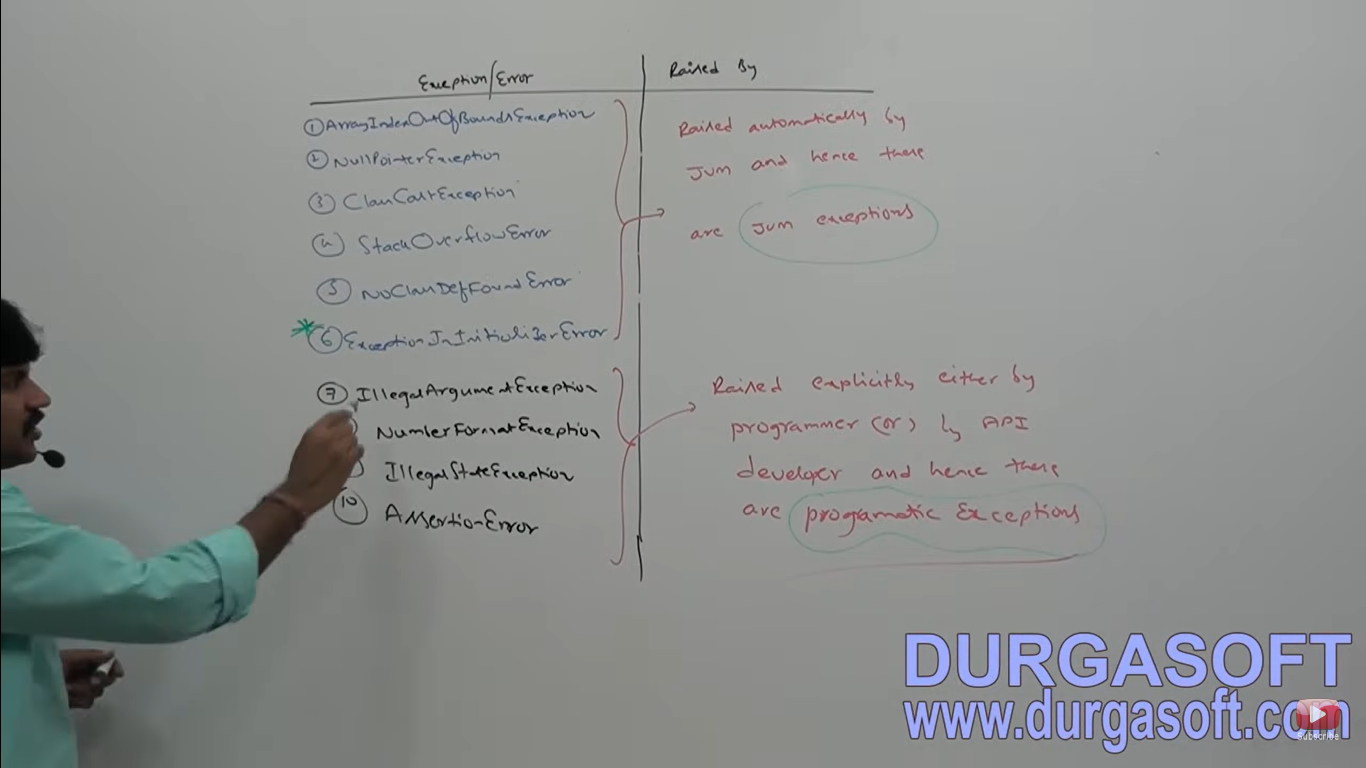 Exception/Error
Raised By
① ArrayIndexOutOfBoundsException
② NullPointerException
③ ClassCastException
④ StackOverflowError
⑤ NoClassDefFoundError
* ⑥ ExceptionInInitializerError
Raised automatically by
JVM and hence these
are JVM exceptions
⑦ IllegalArgumentException
NumberFormatException
IllegalStateException
⑩ AssertionError
Raised explicitly either by
programmer (or) by API
developer and hence these
are programatic Exceptions
DURGASOFT
www.durgasoft.com
Subscribe